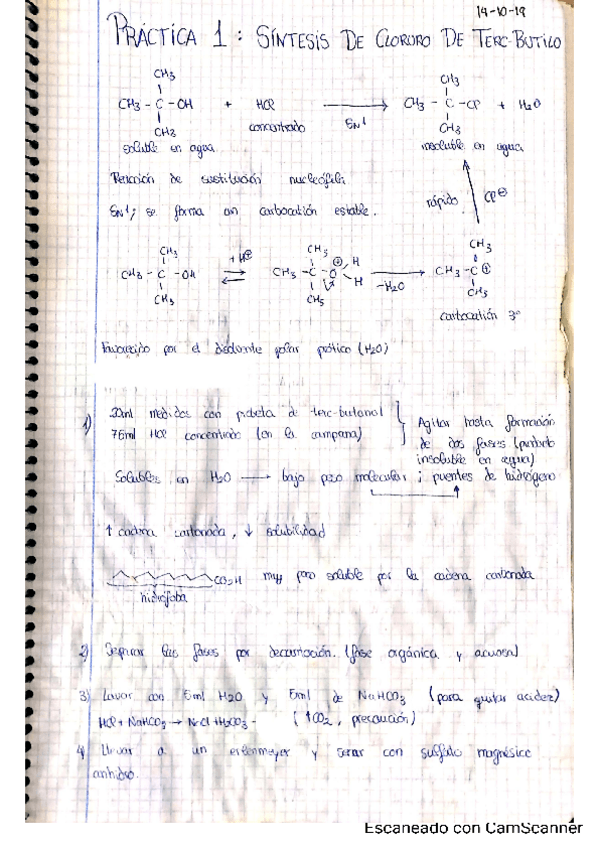 14-10-19
PRÁCTICA 1: SÍNTESIS DE CLORURO DE TERC-BUTILO
CH3 CH3
CH3 - C - OH + HCl → CH3 - C - Cl + H2O
CH3 concentrado SN1 CH3
soluble en agua insoluble en agua
Reacción de sustitución nucleófila
SN1; se forma un carbocatión estable. rápido Cl⊖
CH3 CH3 CH3
CH3 - C - OH + H⊕ ⇌ CH3 - C - O⊕ H H -H2O → CH3 - C⊕
CH3 CH3 CH3
carbocatión 3º
Favorecido por el disolvente polar prótico (H2O)
1) 30ml medidos con probeta de terc-butanol
75ml HCl concentrado (en la campana)
Agitar hasta formación
de dos fases (producto
insoluble en agua)
Solubles en H2O → bajo peso molecular; puentes de hidrógeno
↑ cadena carbonada, ↓ solubilidad
CO2H muy poco soluble por la cadena carbonada
hidrófoba
2) Separar las fases por decantación. (fase orgánica y acuosa)
3) Lavar con 5ml H2O y 5ml de NaHCO3 (para quitar acidez)
HCl + NaHCO3 → NaCl + H2CO3 - (↑CO2, precaución)
4) Llevar a un erlenmeyer y secar con sulfato magnésico
anhidro.
Escaneado con CamScanner